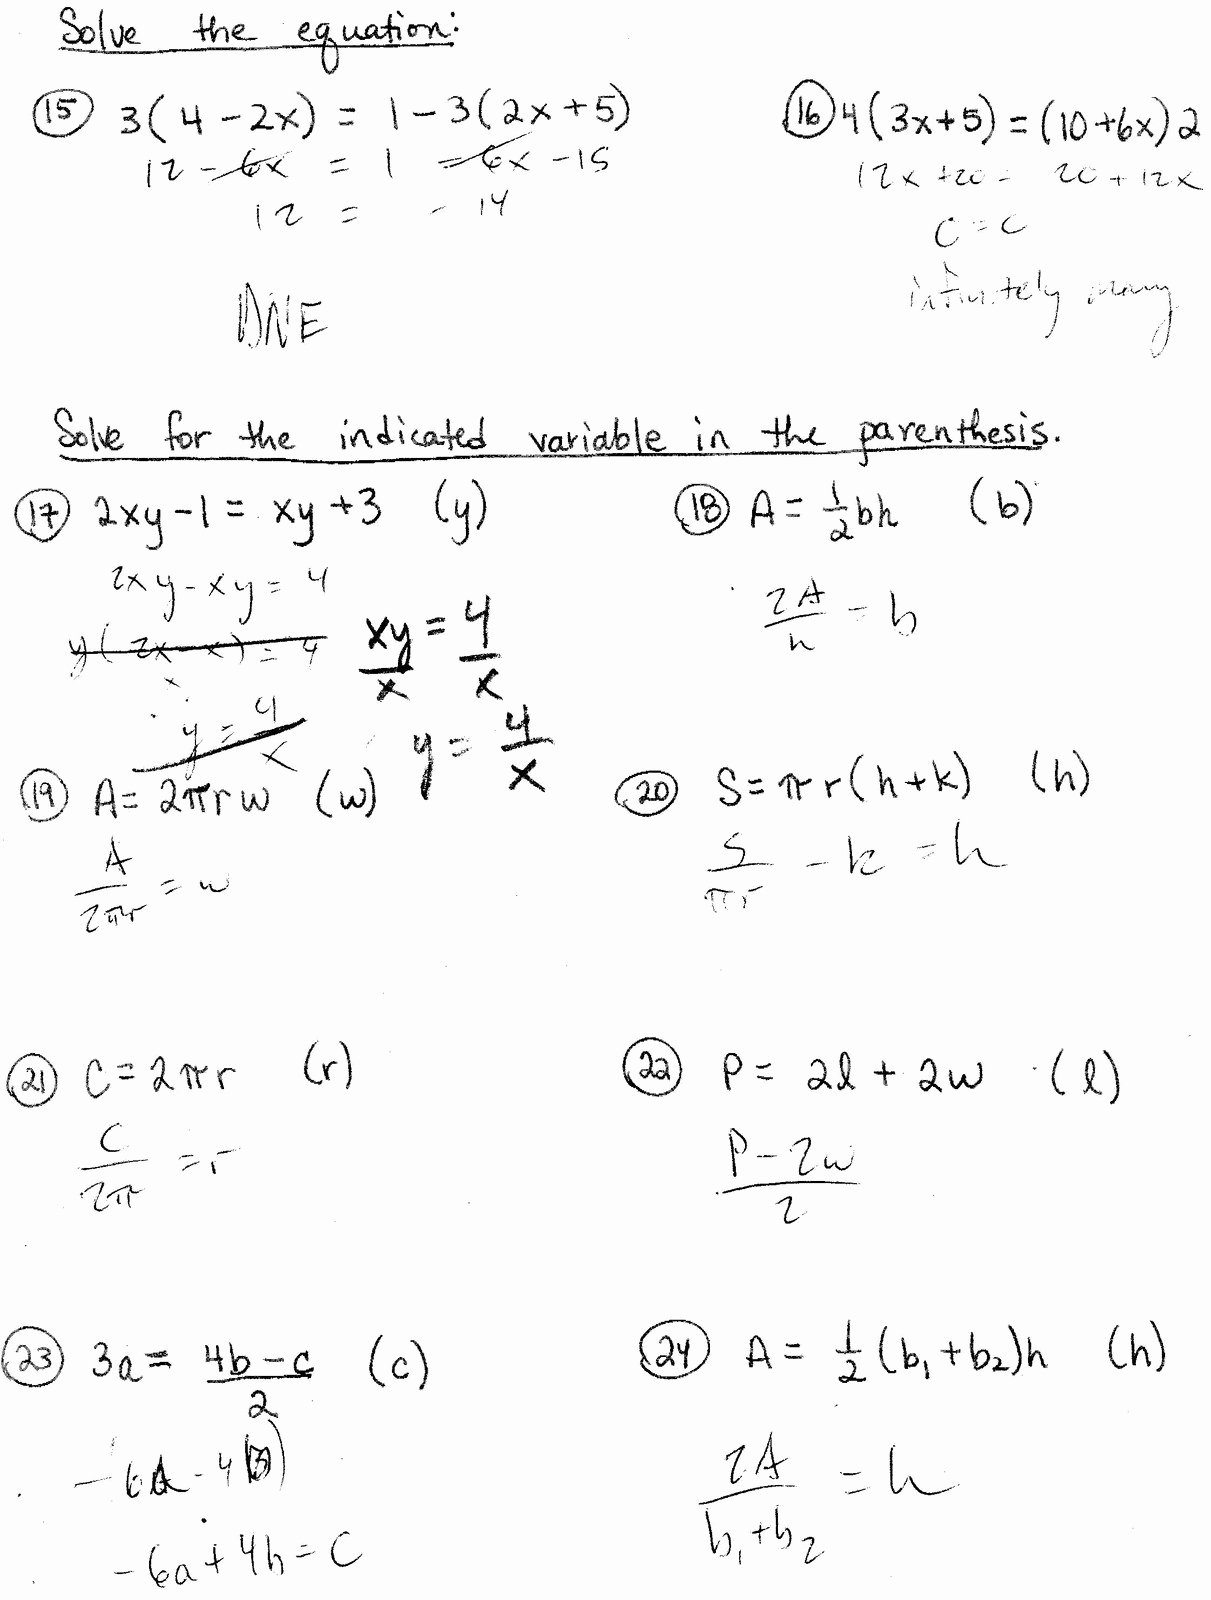 Solve the equation:
15 3(4-2x) = 1-3(2x+5)
12-6x = 1 -6x -15
12 = -14
DNE
16 4(3x+5)=(10+6x)2
12x+20= 20+12x
C=C
infinitely many
Solve for the indicated variable in the parenthesis.
17 2xy-1= xy+3 (y)
2xy-xy=4
y(2x-x)=4
y=4/x
xy/x=4/x
y=4/x
18 A=1/2bh (b)
2A/h=b
19 A=2πrw (w)
A/2πr=w
20 S=πr(h+k) (h)
S/πr -k=h
21 C=2πr (r)
C/2π=r
22 P= 2l+2w (l)
P-2w/2
23 3a= 4b-c/2 (c)
-6a-4
-6a+4b=C
24 A= 1/2(b₁+b₂)h (h)
2A/b₁+b₂ =h